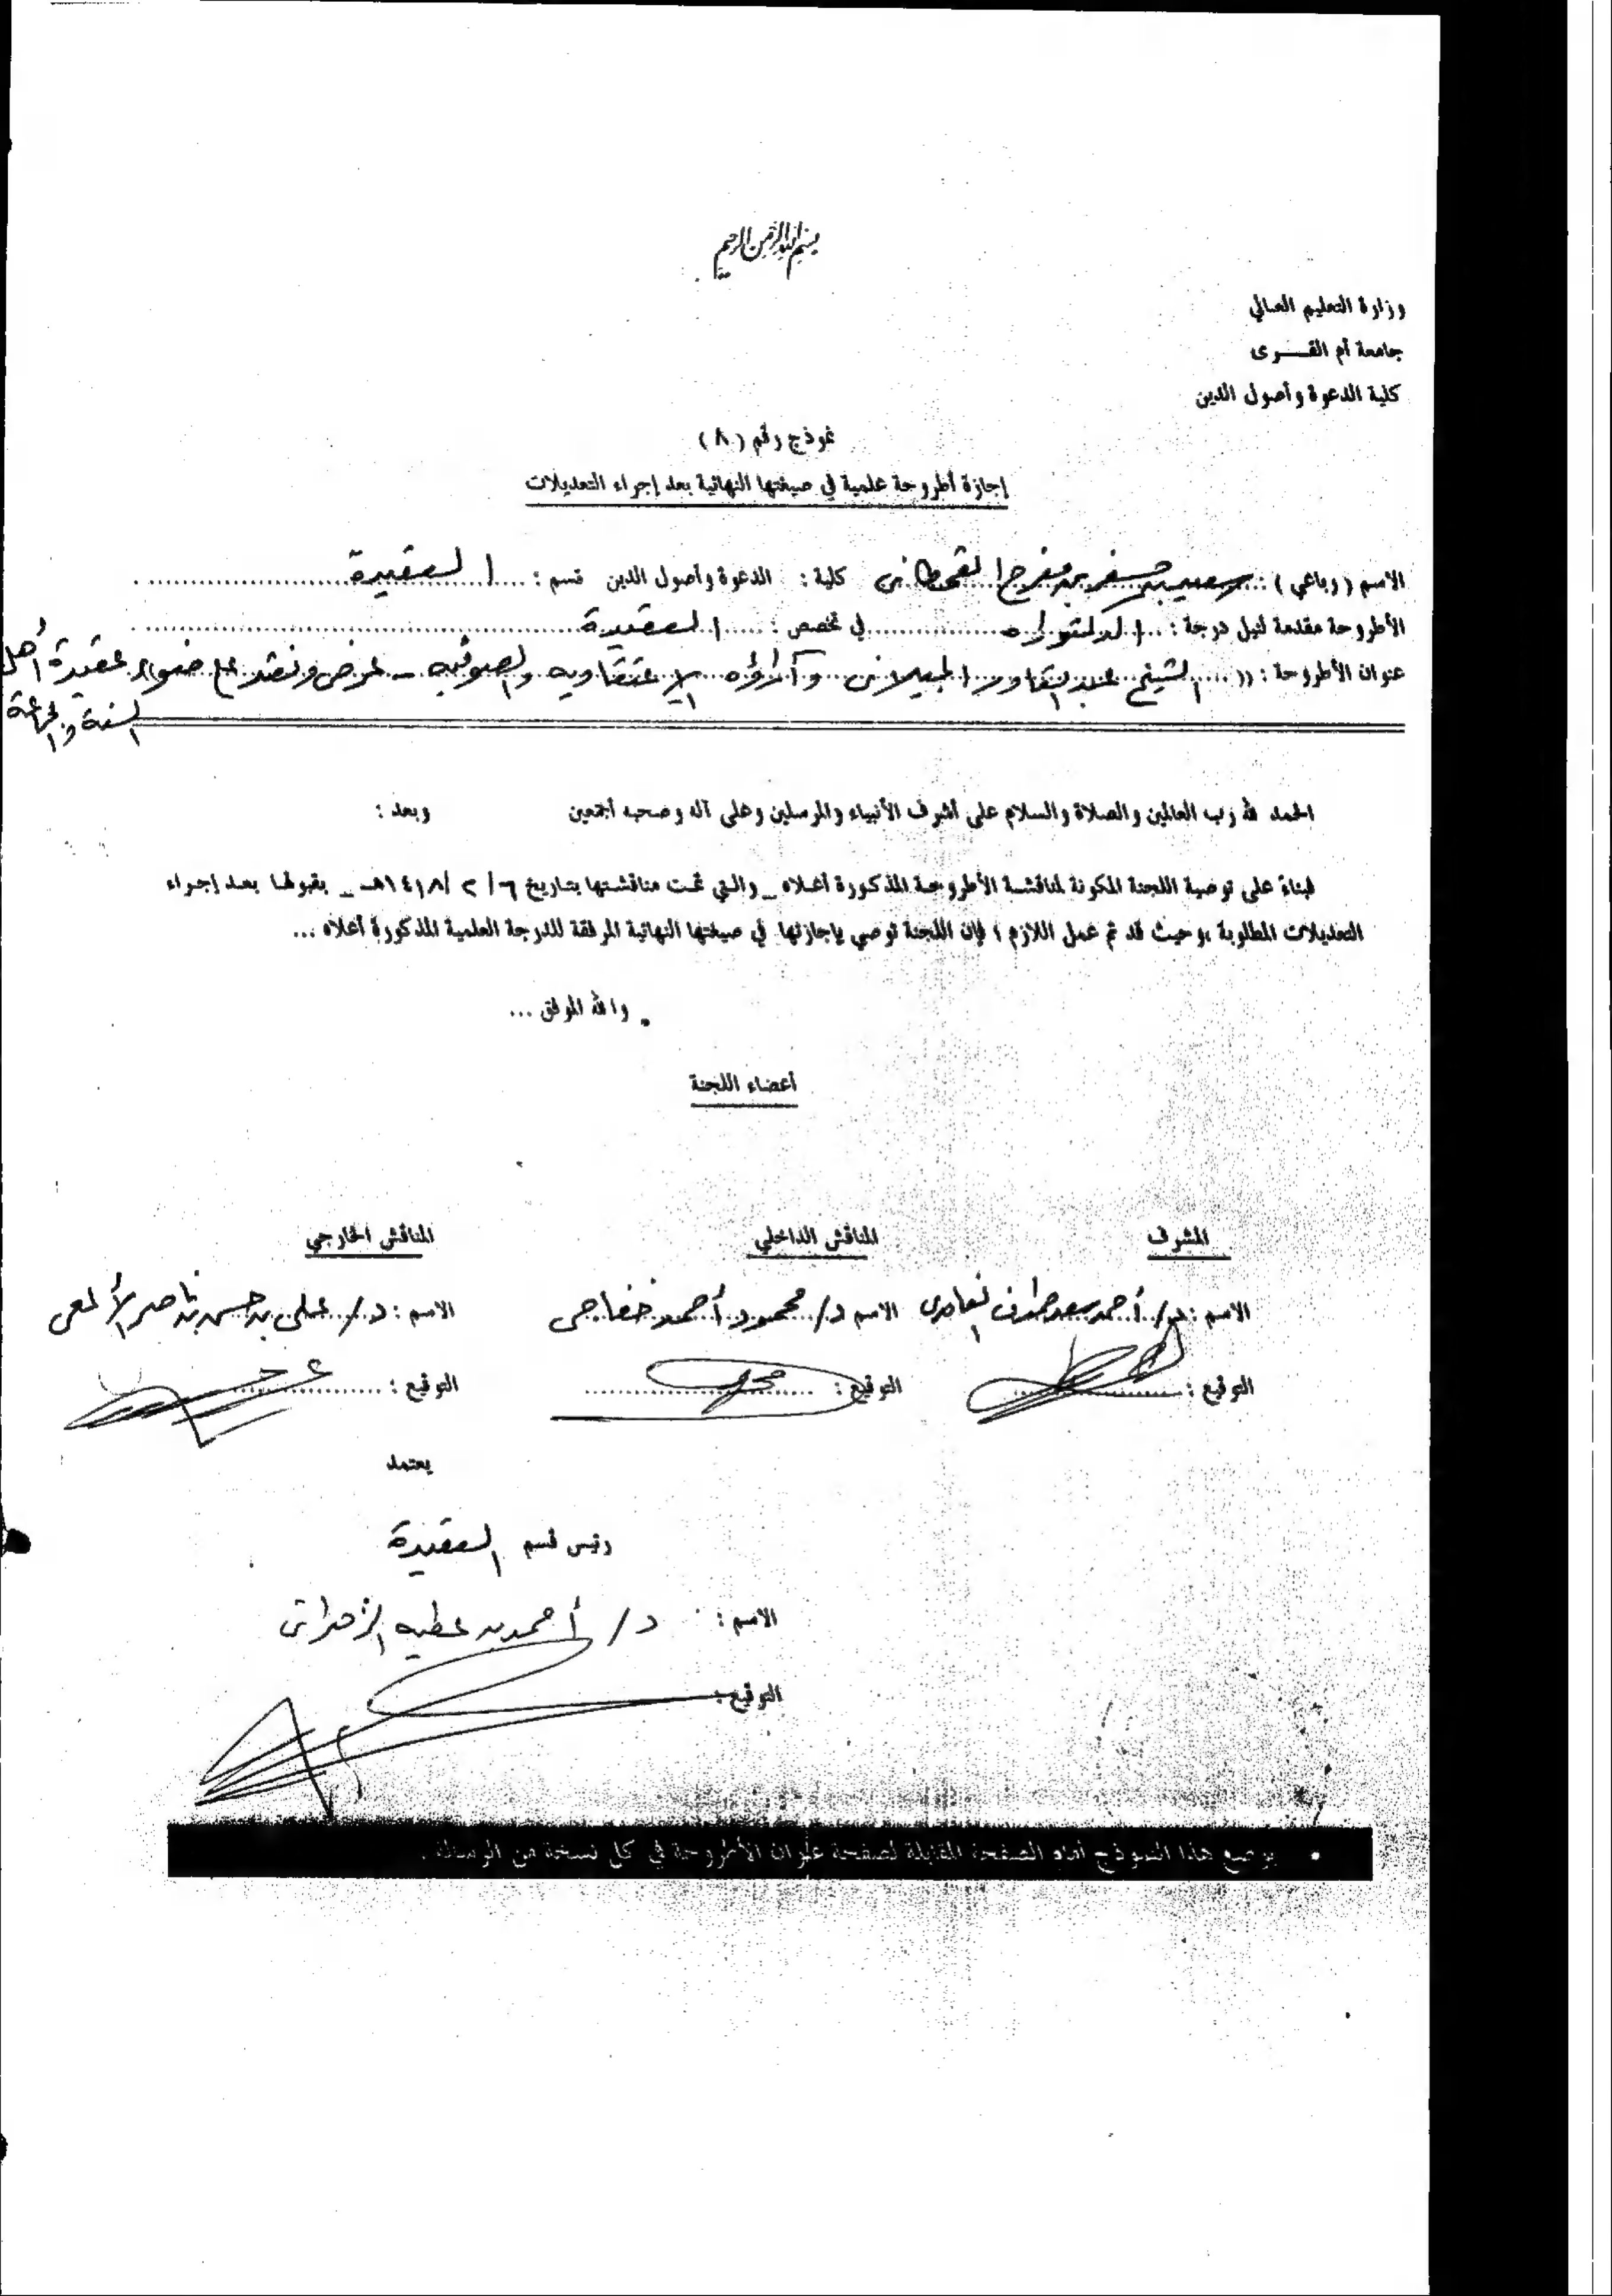 بسم الله الرحمن الرحيم
وزارة التعليم العالي
جامعة أم القـــرى
كلية الدعوة وأصول الدين
نموذج رقم (٨)
إجازة أطروحة علمية في صيغتها النهائية بعد إجراء التعديلات
الاسم (رباعي) : سعيد بن مسفر بن مفرح القحطاني كلية : الدعوة وأصول الدين قسم : العقيدة
الأطروحة مقدمة لنيل درجة : الدكتوراه في تخصص : العقيدة
عنوان الأطروحة : (( الشيخ عبد القادر الجيلاني وآراؤه الاعتقادية والصوفية - عرض ونقد على ضوء عقيدة أهل
السنة والجماعة
الحمد لله رب العالمين والصلاة والسلام على أشرف الأنبياء والمرسلين وعلى آله وصحبه أجمعين وبعد :
فبناءً على توصية اللجنة المكونة لمناقشة الأطروحة المذكورة أعلاه _ والتي تمت مناقشتها بتاريخ ٦/ ٢ /١٤١٨هـ _ بقبولها بعد إجراء
التعديلات المطلوبة ، وحيث قد تم عمل اللازم ؛ فإن اللجنة توصي بإجازتها في صيغتها النهائية المرفقة للدرجة العلمية المذكورة أعلاه ...
والله الموفق ...
أعضاء اللجنة
المشرف المناقش الداخلي المناقش الخارجي
الاسم : د/ أحمد سعد حمدان الغامدي الاسم د/ محمود أحمد خفاجي الاسم : د/ علي بن حسن بن ناصر الألمعي
التوقيع : التوقيع : التوقيع :
يعتمد
رئيس قسم العقيدة
الاسم : د/ أحمد بن عطيه الزهراني
التوقيع :
• يوضع هذا النموذج أمام الصفحة المقابلة لصفحة عنوان الأطروحة في كل نسخة من الرسالة .